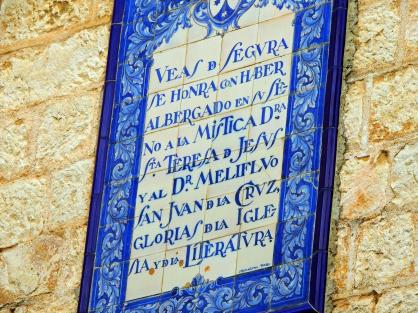 VEAS D SEGURA
SE HONRA CON HABER
ALBERGADO EN SU SE-
NO A LA MÍSTICA DRA
STA TERESA D JESUS
Y AL DR. MELIFLUO
SAN JUAN D LA CRUZ,
GLORIAS D LA IGLE-
SIA Y D LA LITERATURA.